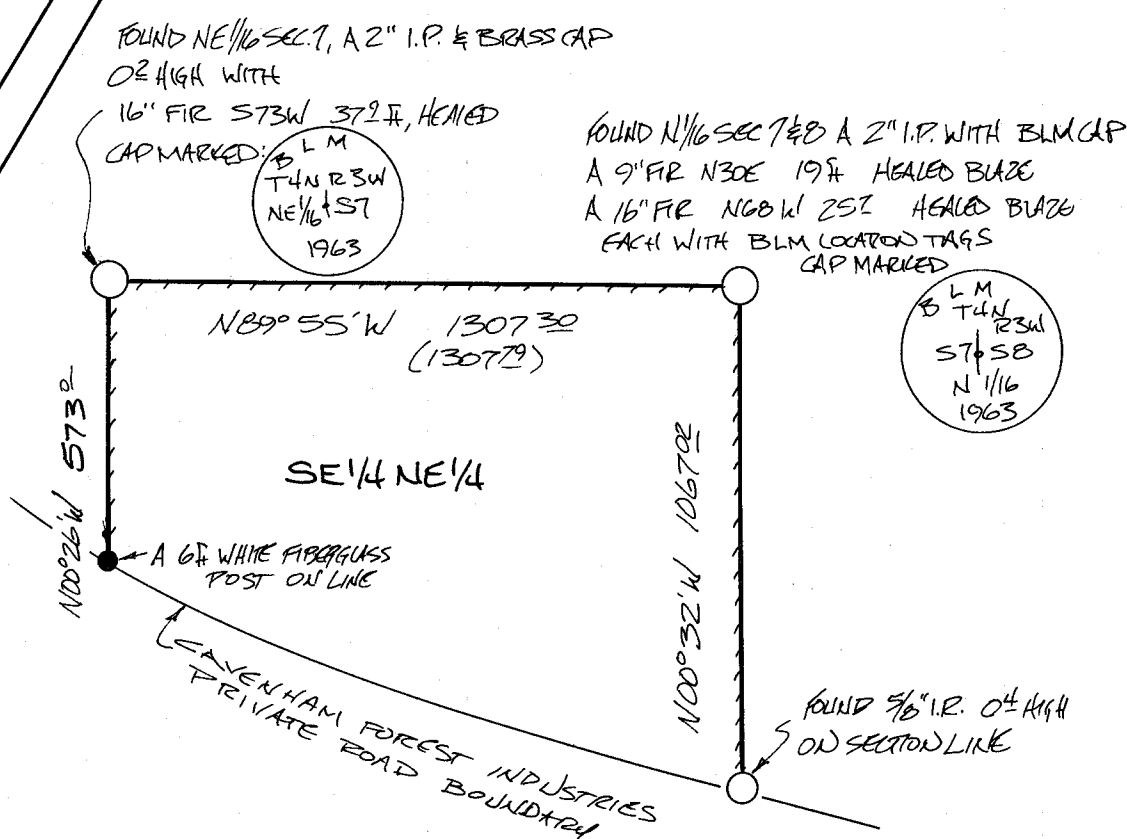 FOUND NE 1/16 SEC. 7, A 2" I.P. & BRASS CAP
0² HIGH WITH
16" FIR S73W 37⁹ ft, HEALED
CAP MARKED:
B L M
T4N R3W
NE 1/16 S7
1963
FOUND N 1/16 SEC 7 & 8 A 2" I.P. WITH BLM CAP
A 9" FIR N30E 19 ft HEALED BLAZE
A 16" FIR N68W 25² HEALED BLAZE
EACH WITH BLM LOCATION TAGS
CAP MARKED
B L M
T4N
R3W
S7 S8
N 1/16
1963
N89° 55' W 1307 30
(1307 79)
N00° 26' W 573 º
SE 1/4 NE 1/4
N00° 32' W 1067 02
A 6 ft WHITE FIBERGLASS
POST ON LINE
CAVENHAM FOREST INDUSTRIES
PRIVATE ROAD BOUNDARY
FOUND 5/8" I.R. 0⁴ HIGH
ON SECTION LINE